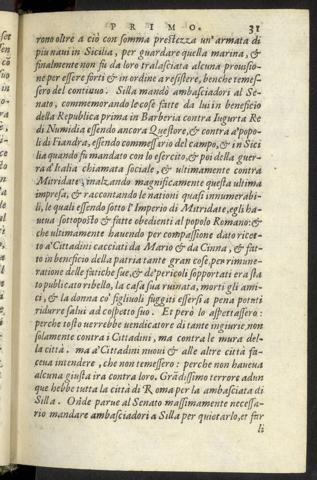 PRIMO. 31
rono oltre a ciò con somma prestezza un'armata di
piu naui in Sicilia, per guardare quella marina, &
finalmente non fu da loro tralasciata alcuna prouisio-
ne per essere forti & in ordine a resistere, benche temes-
sero del continuo. Silla mandò ambasciadori al Se-
nato, commemorando le cose fatte da lui in beneficio
della Republica prima in Barberia contra Iugurta Re
di Numidia essendo ancora Questore, & contra a' popo-
li di Fiandra, essendo commessario del campo, & in Sici
lia quando fu mandato con lo esercito, & poi della guer-
ra d'Italia chiamata sociale, & ultimamente contra
Mitridate, inalzando magnificamente questa ultima
impresa, & raccontando le nationi quasi innumerabi-
li, le quali essendo sotto l'Imperio di Mitridate, egli ha-
uea sottoposto & fatte obedienti al popolo Romano: &
che ultimamente hauendo per compassione dato ricet-
to a' Cittadini cacciati da Mario & da Cinna, & fat-
to in beneficio della patria tante gran cose, per rimune-
ratione delle fatiche sue, & de' pericoli sopportati era sta
to publicato ribello, la casa sua ruinata, morti gli ami-
ci, & la donna co' figliuoli fuggiti essersi a pena potuti
ridurre salui al cospetto suo. Et però lo aspettassero:
perche tosto uerrebbe uendicatore di tante ingiurie, non
solamente contra i Cittadini, ma contra le mura del-
la città, ma a' Cittadini nuoui & alle altre città fa-
ceua intendere, che non temessero: perche non haueua
alcuna giusta ira contra loro. Grādissimo terrore adun
que hebbe tutta la città di Roma per la ambasciata di
Silla. Onde parue al Senato massimamente necessa-
rio mandare ambasciadori a Silla per quietarlo, et far
li